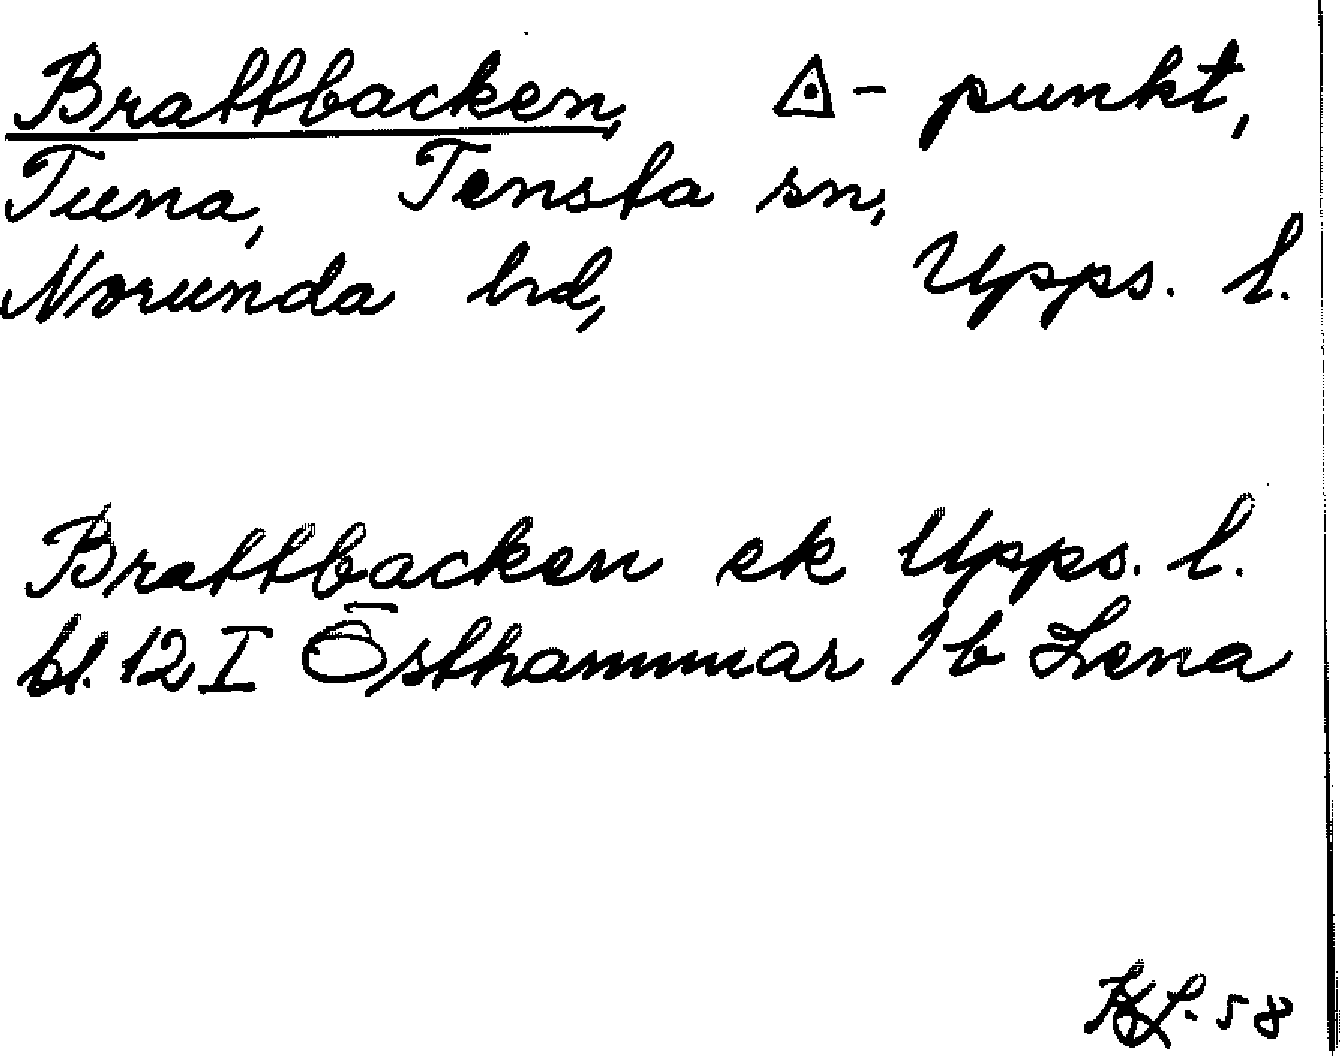 Brattbacken, △- punkt,
Tuna, Tensta sn,
Norunda hd, Upps. l.
Brattbacken ek Upps. l.
bl. 12 I Östhammar 1b Lena
58